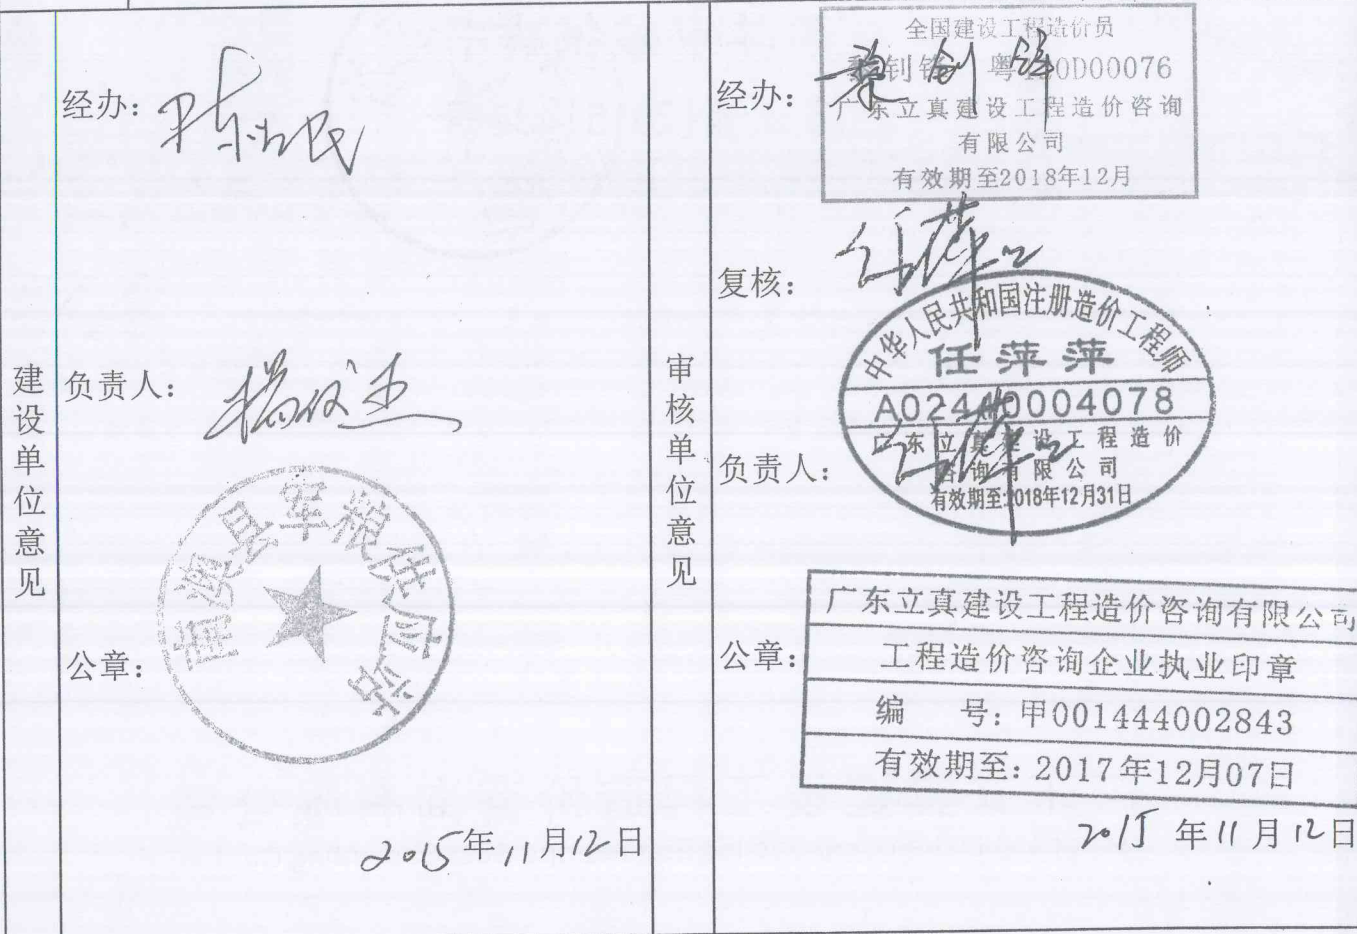 建设单位意见
经办：
负责人：
县军粮供应站
公章：
2015年11月12日
审核单位意见
经办：
全国建设工程造价员
0D00076
广东立真建设工程造价咨询
有限公司
有效期至2018年12月
复核：
中华人民共和国注册造价工程师
任萍萍
A02440004078
广东立真建设工程造价
咨询有限公司
有效期至:2018年12月31日
负责人：
公章：
广东立真建设工程造价咨询有限公司
工程造价咨询企业执业印章
编 号：甲001444002843
有效期至：2017年12月07日
2015年11月12日